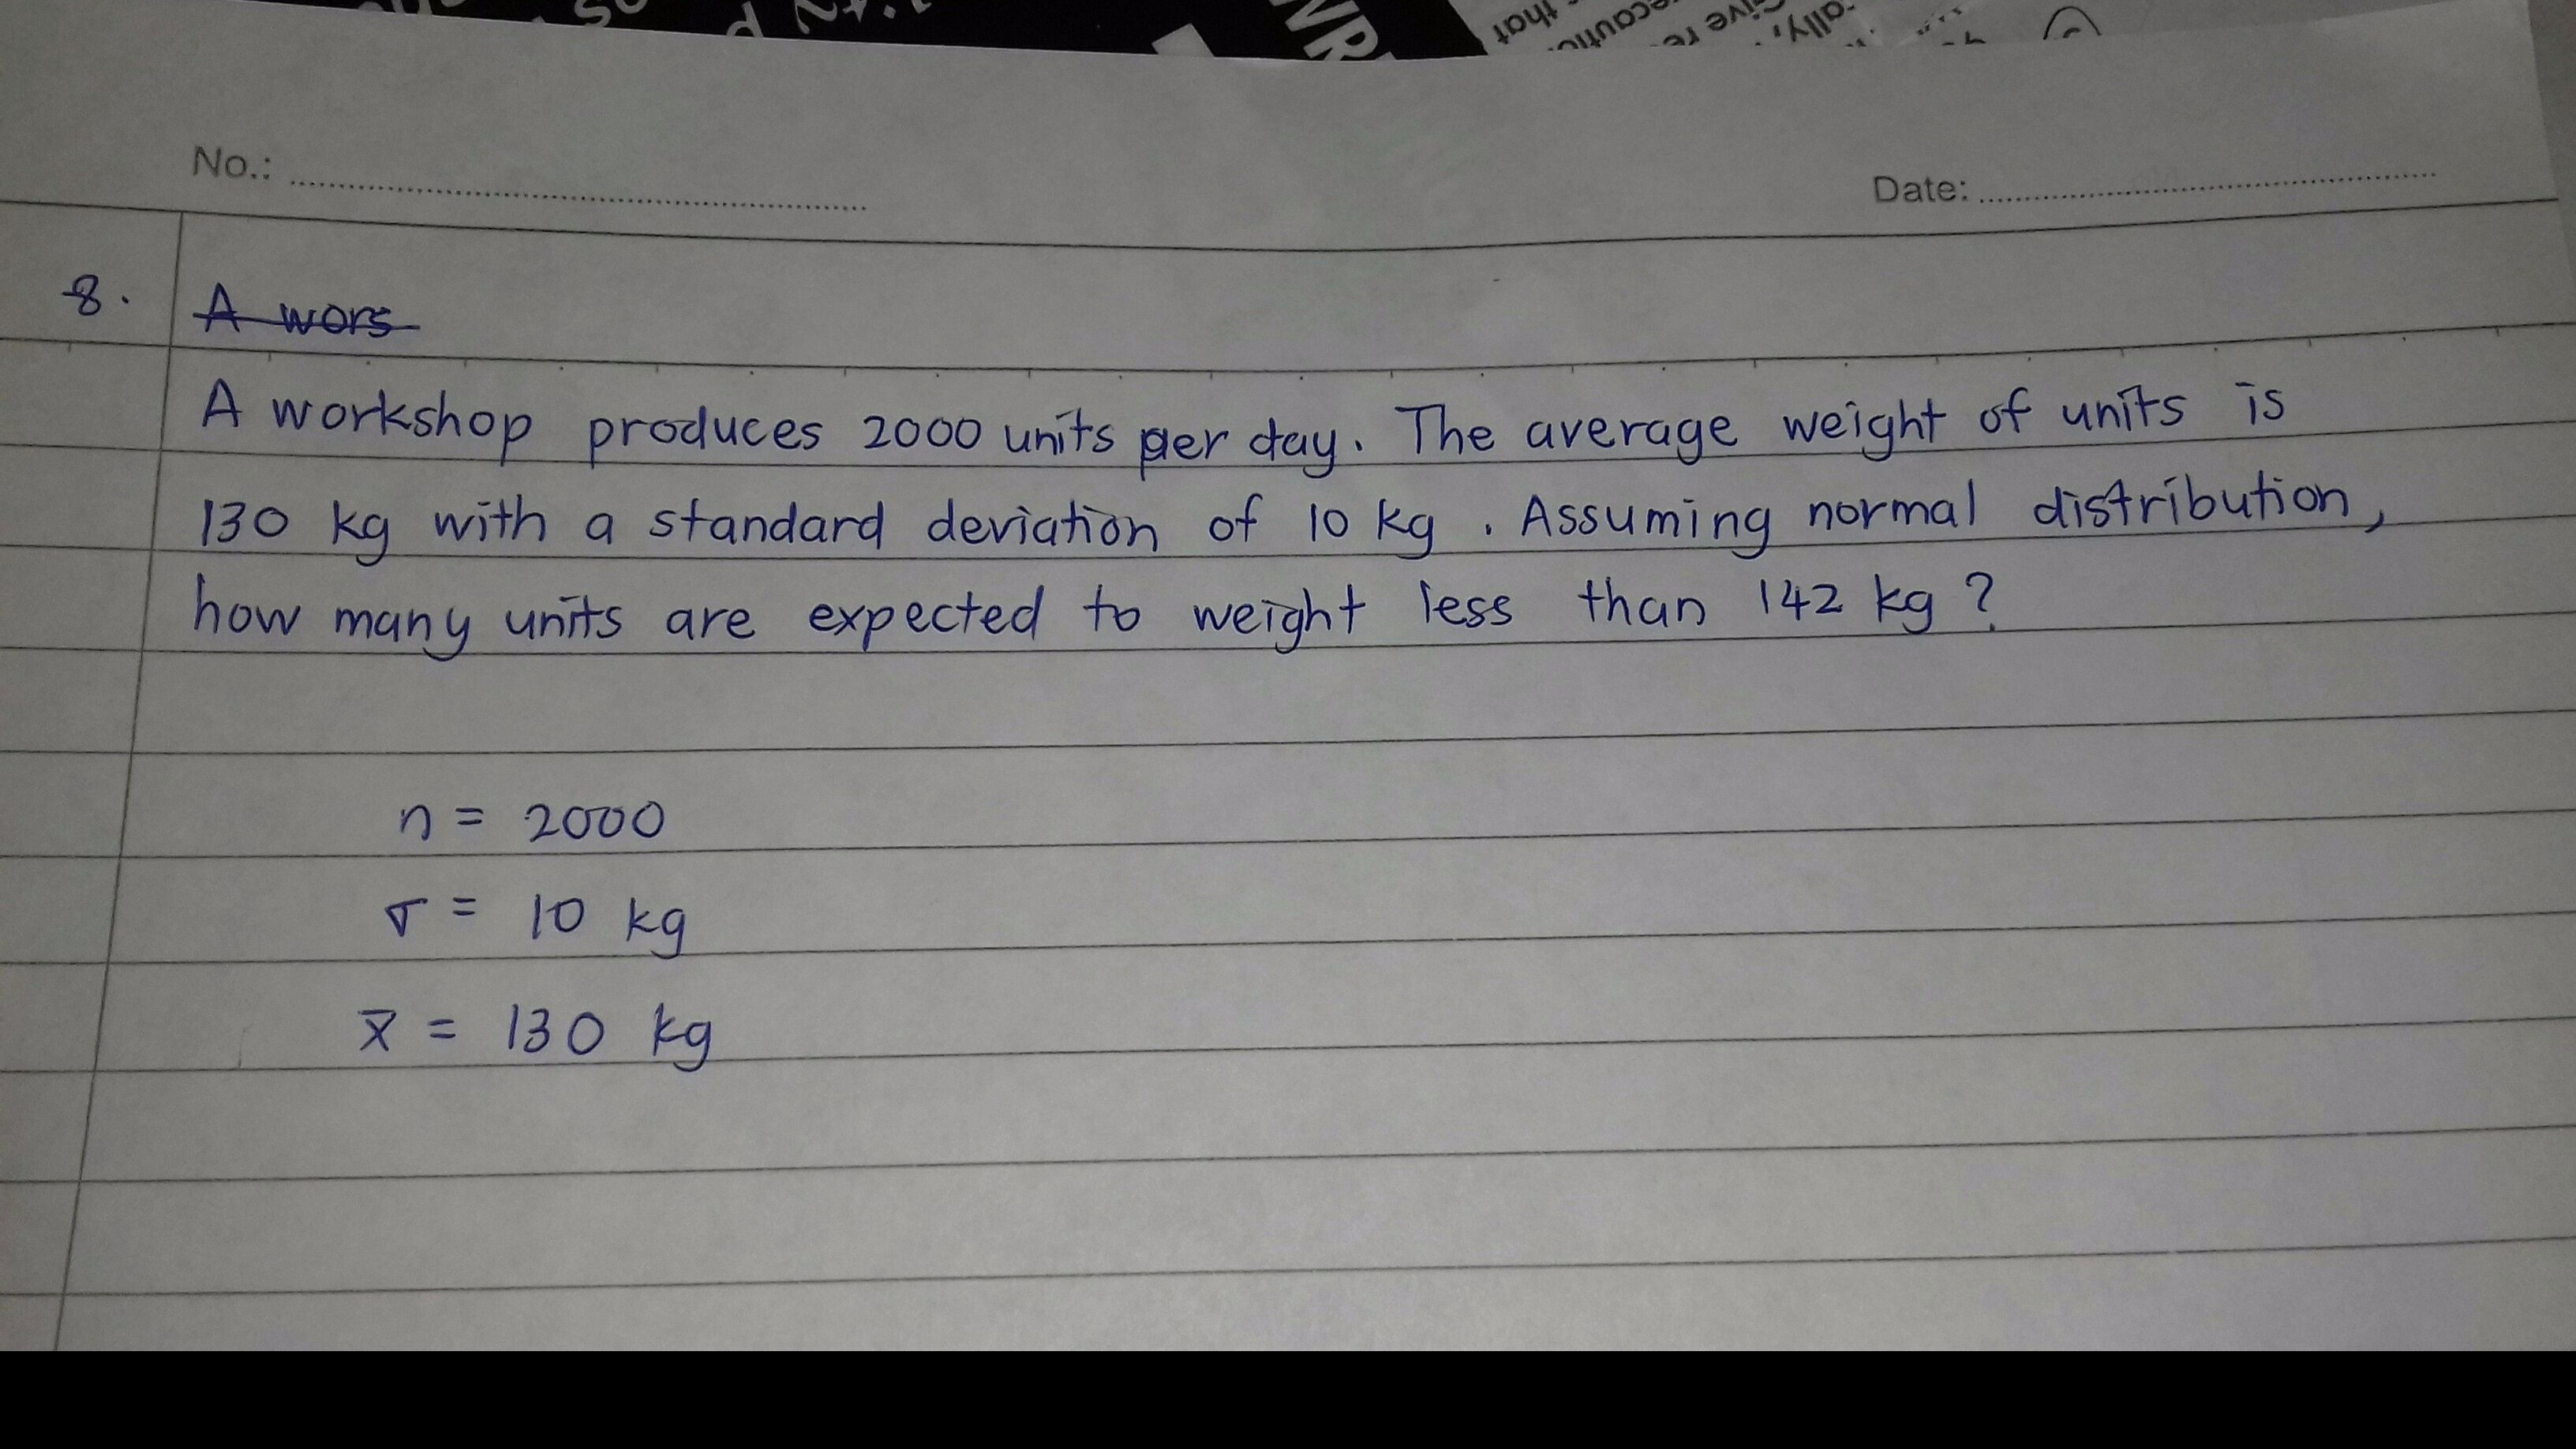 No.:
Date:
8.
A wors
A workshop produces 2000 units per day. The average weight of units is
130 kg with a standard deviation of 10 kg. Assuming normal distribution,
how many units are expected to weight less than 142 kg?
n = 2000
σ = 10 kg
x̄ = 130 kg
that